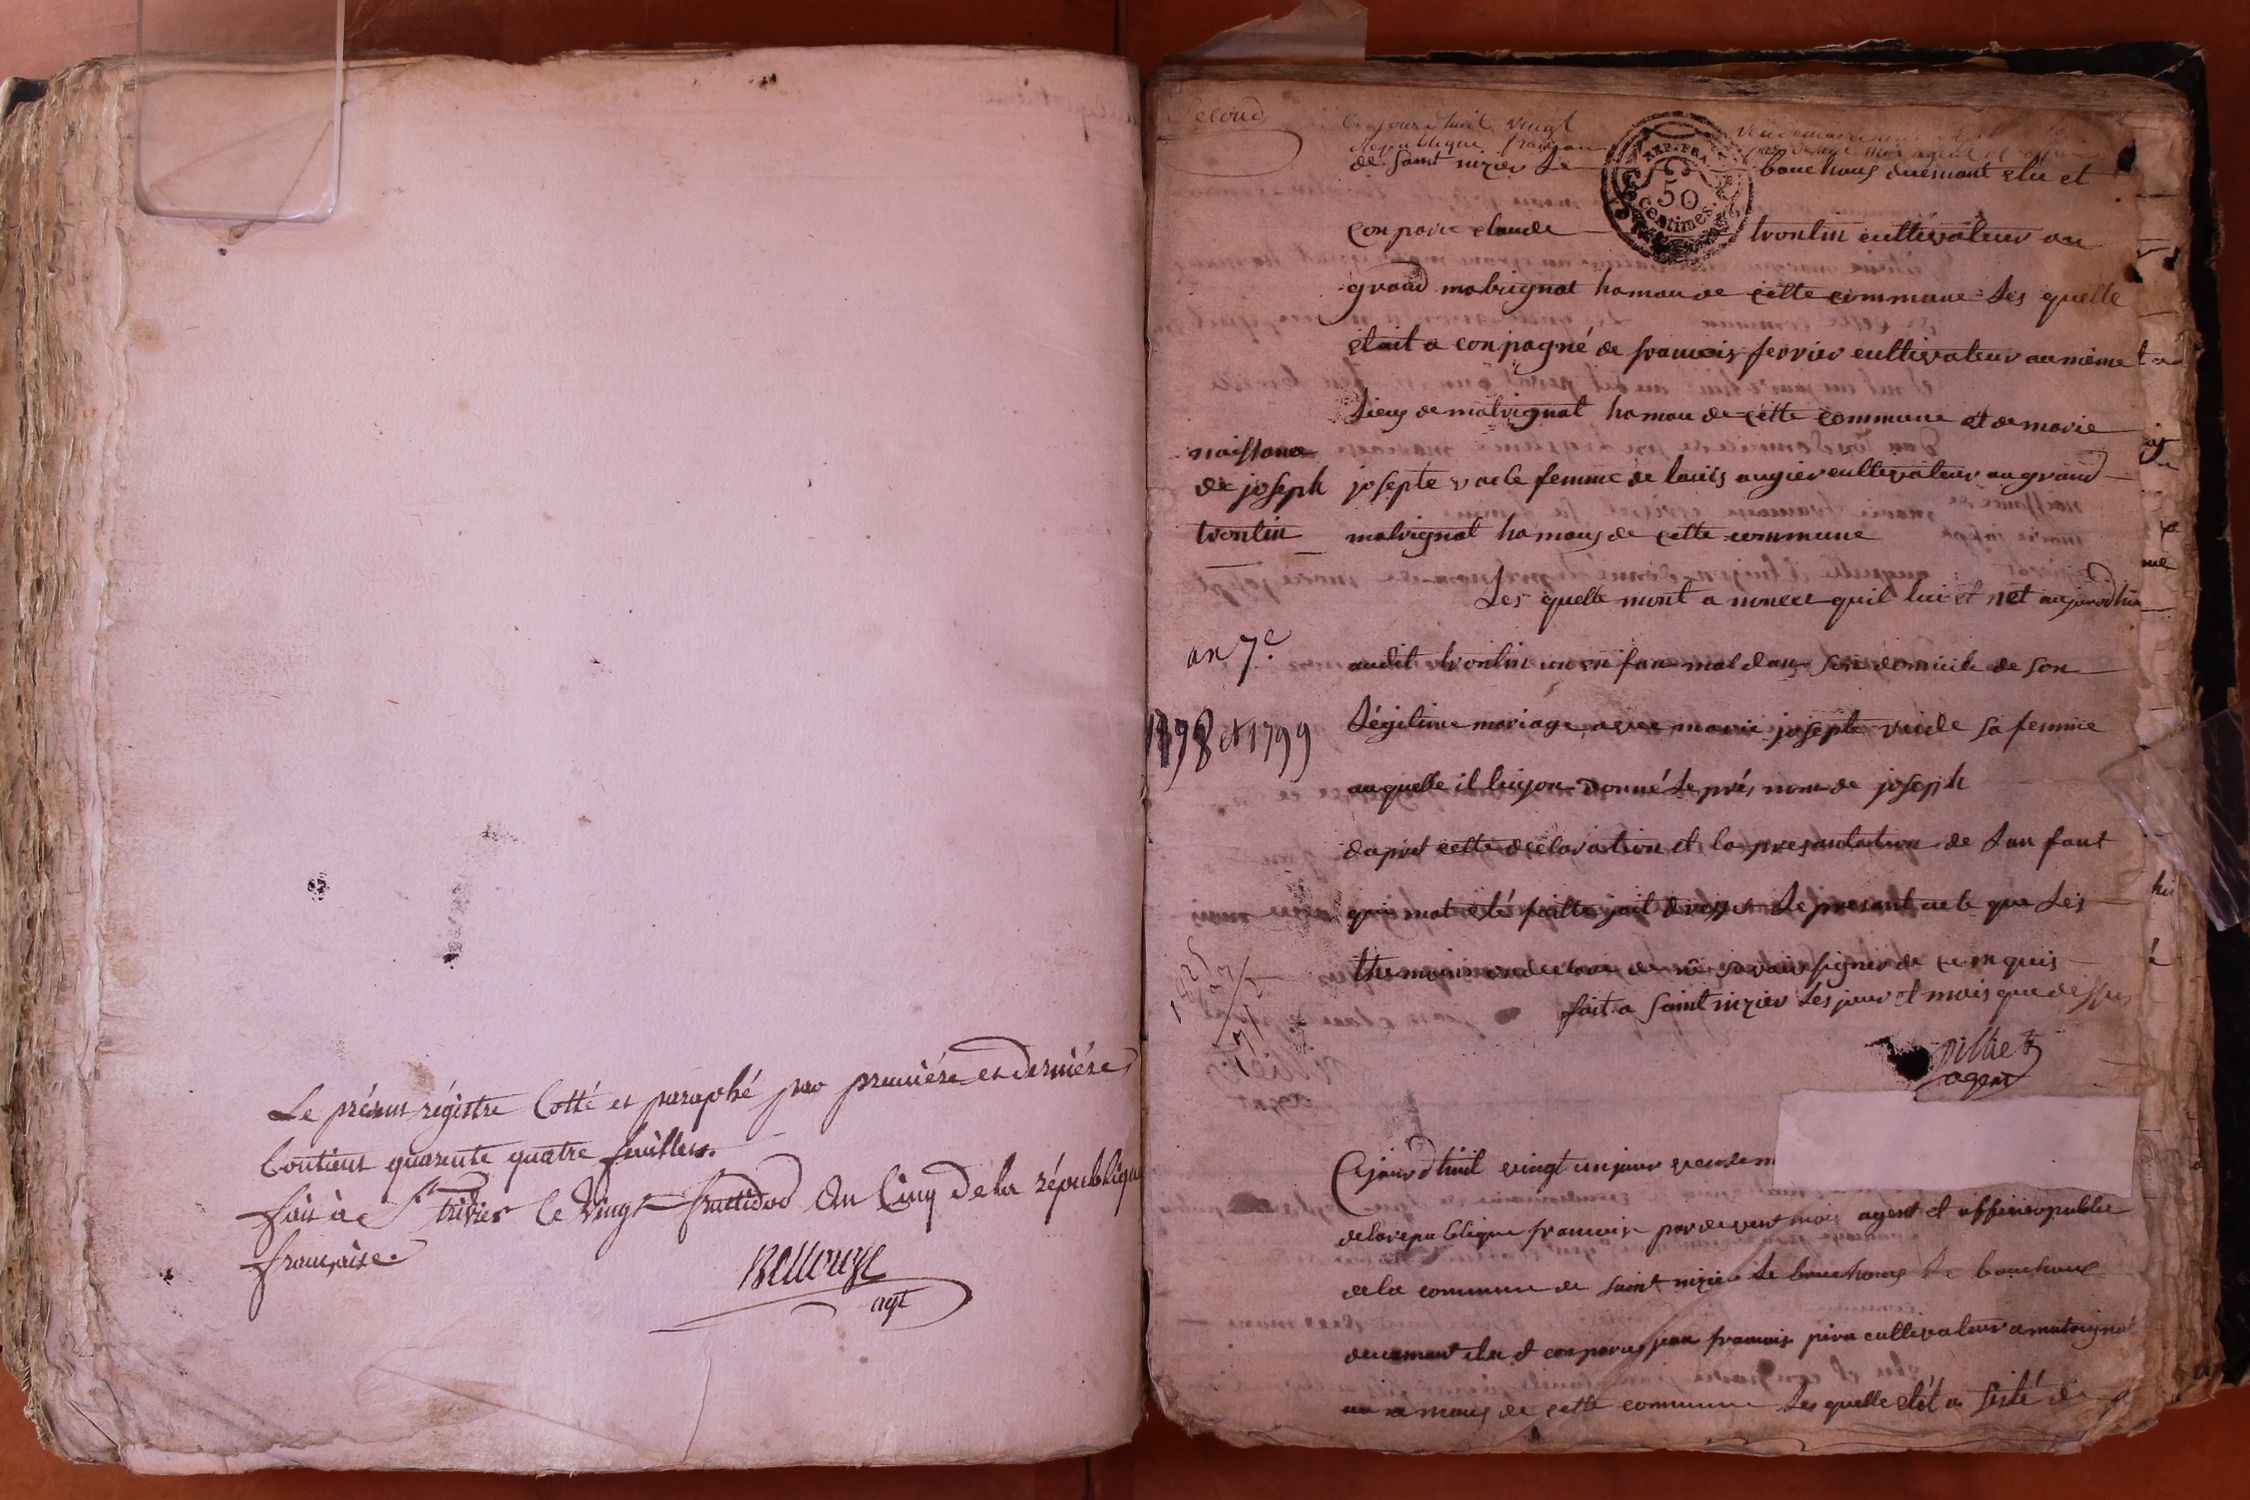 Le présent régistre Cotté et paraphé par premiére et derniére
Contient quarente quatre feuillets.
fait à St trivier le Vingt fructidor An Cinq De la république
française.
Bellouze
agt
second
Cejourdhuit vingt
Republique francai
REP. FRA.
50
Centimes.
de saint nizier Le bouchoux duemant elu et
Conparu claude tronlin cultivateur au
grand malvignat hamau de cette commune Les quelle
etait a conpagné de francois ferrier cultivateur au même
Lieux de malvignat hamau de cette commune et de marie
naissance
de joseph
tronlin
josepte vacle femme de louis augier cultivateur au grand
malvignat hamaux de cette commune
Les quelle mont a noncer quil lui et net aujourdhui
an 7e.
audit tronlin un enfan mal dans son domicile de son
1798 et 1799
Légitime mariage avec marie josepte vacle sa femme
auquelle il luy on donné Le prés nom de joseph
daprét cette declaration et la presantation de Lan fant
qui mat etéé faitte jait dresser Le presant acte que Les
themoin on declare de ne savair signer de ce on quis
fait a saint nizier Les jour et mois que dessus
pilliet
agent
Cejourdhuit vingt un jour vendem
de la republique francaise pardevent mois agent et afficier public
de la commune de saint nizier Le bouchoux Le bouchoux
duemant elu et conparu jean francois piron cultivateur a malvignat
hamaux de cette commune Les quelle etét a sisté de